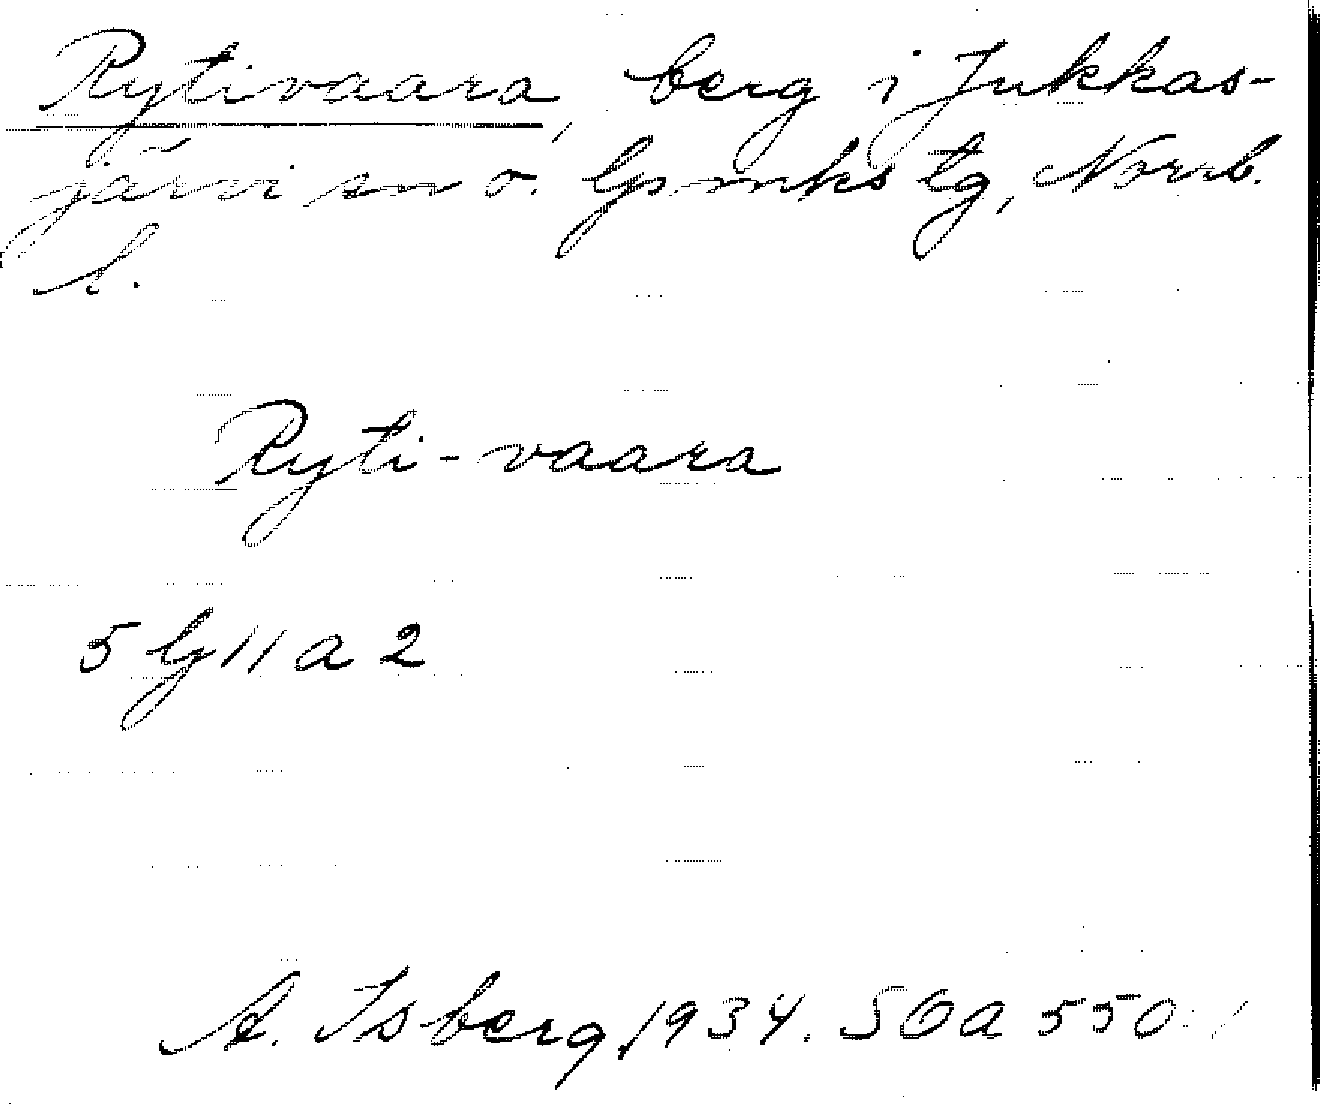 Rytivaara, berg i Jukkas-
järvi sn o. lpmks tg, Norrb.
l.
Ryti-vaara
5 lg 11 a 2
A. Isberg, 1934. SOA 550:1